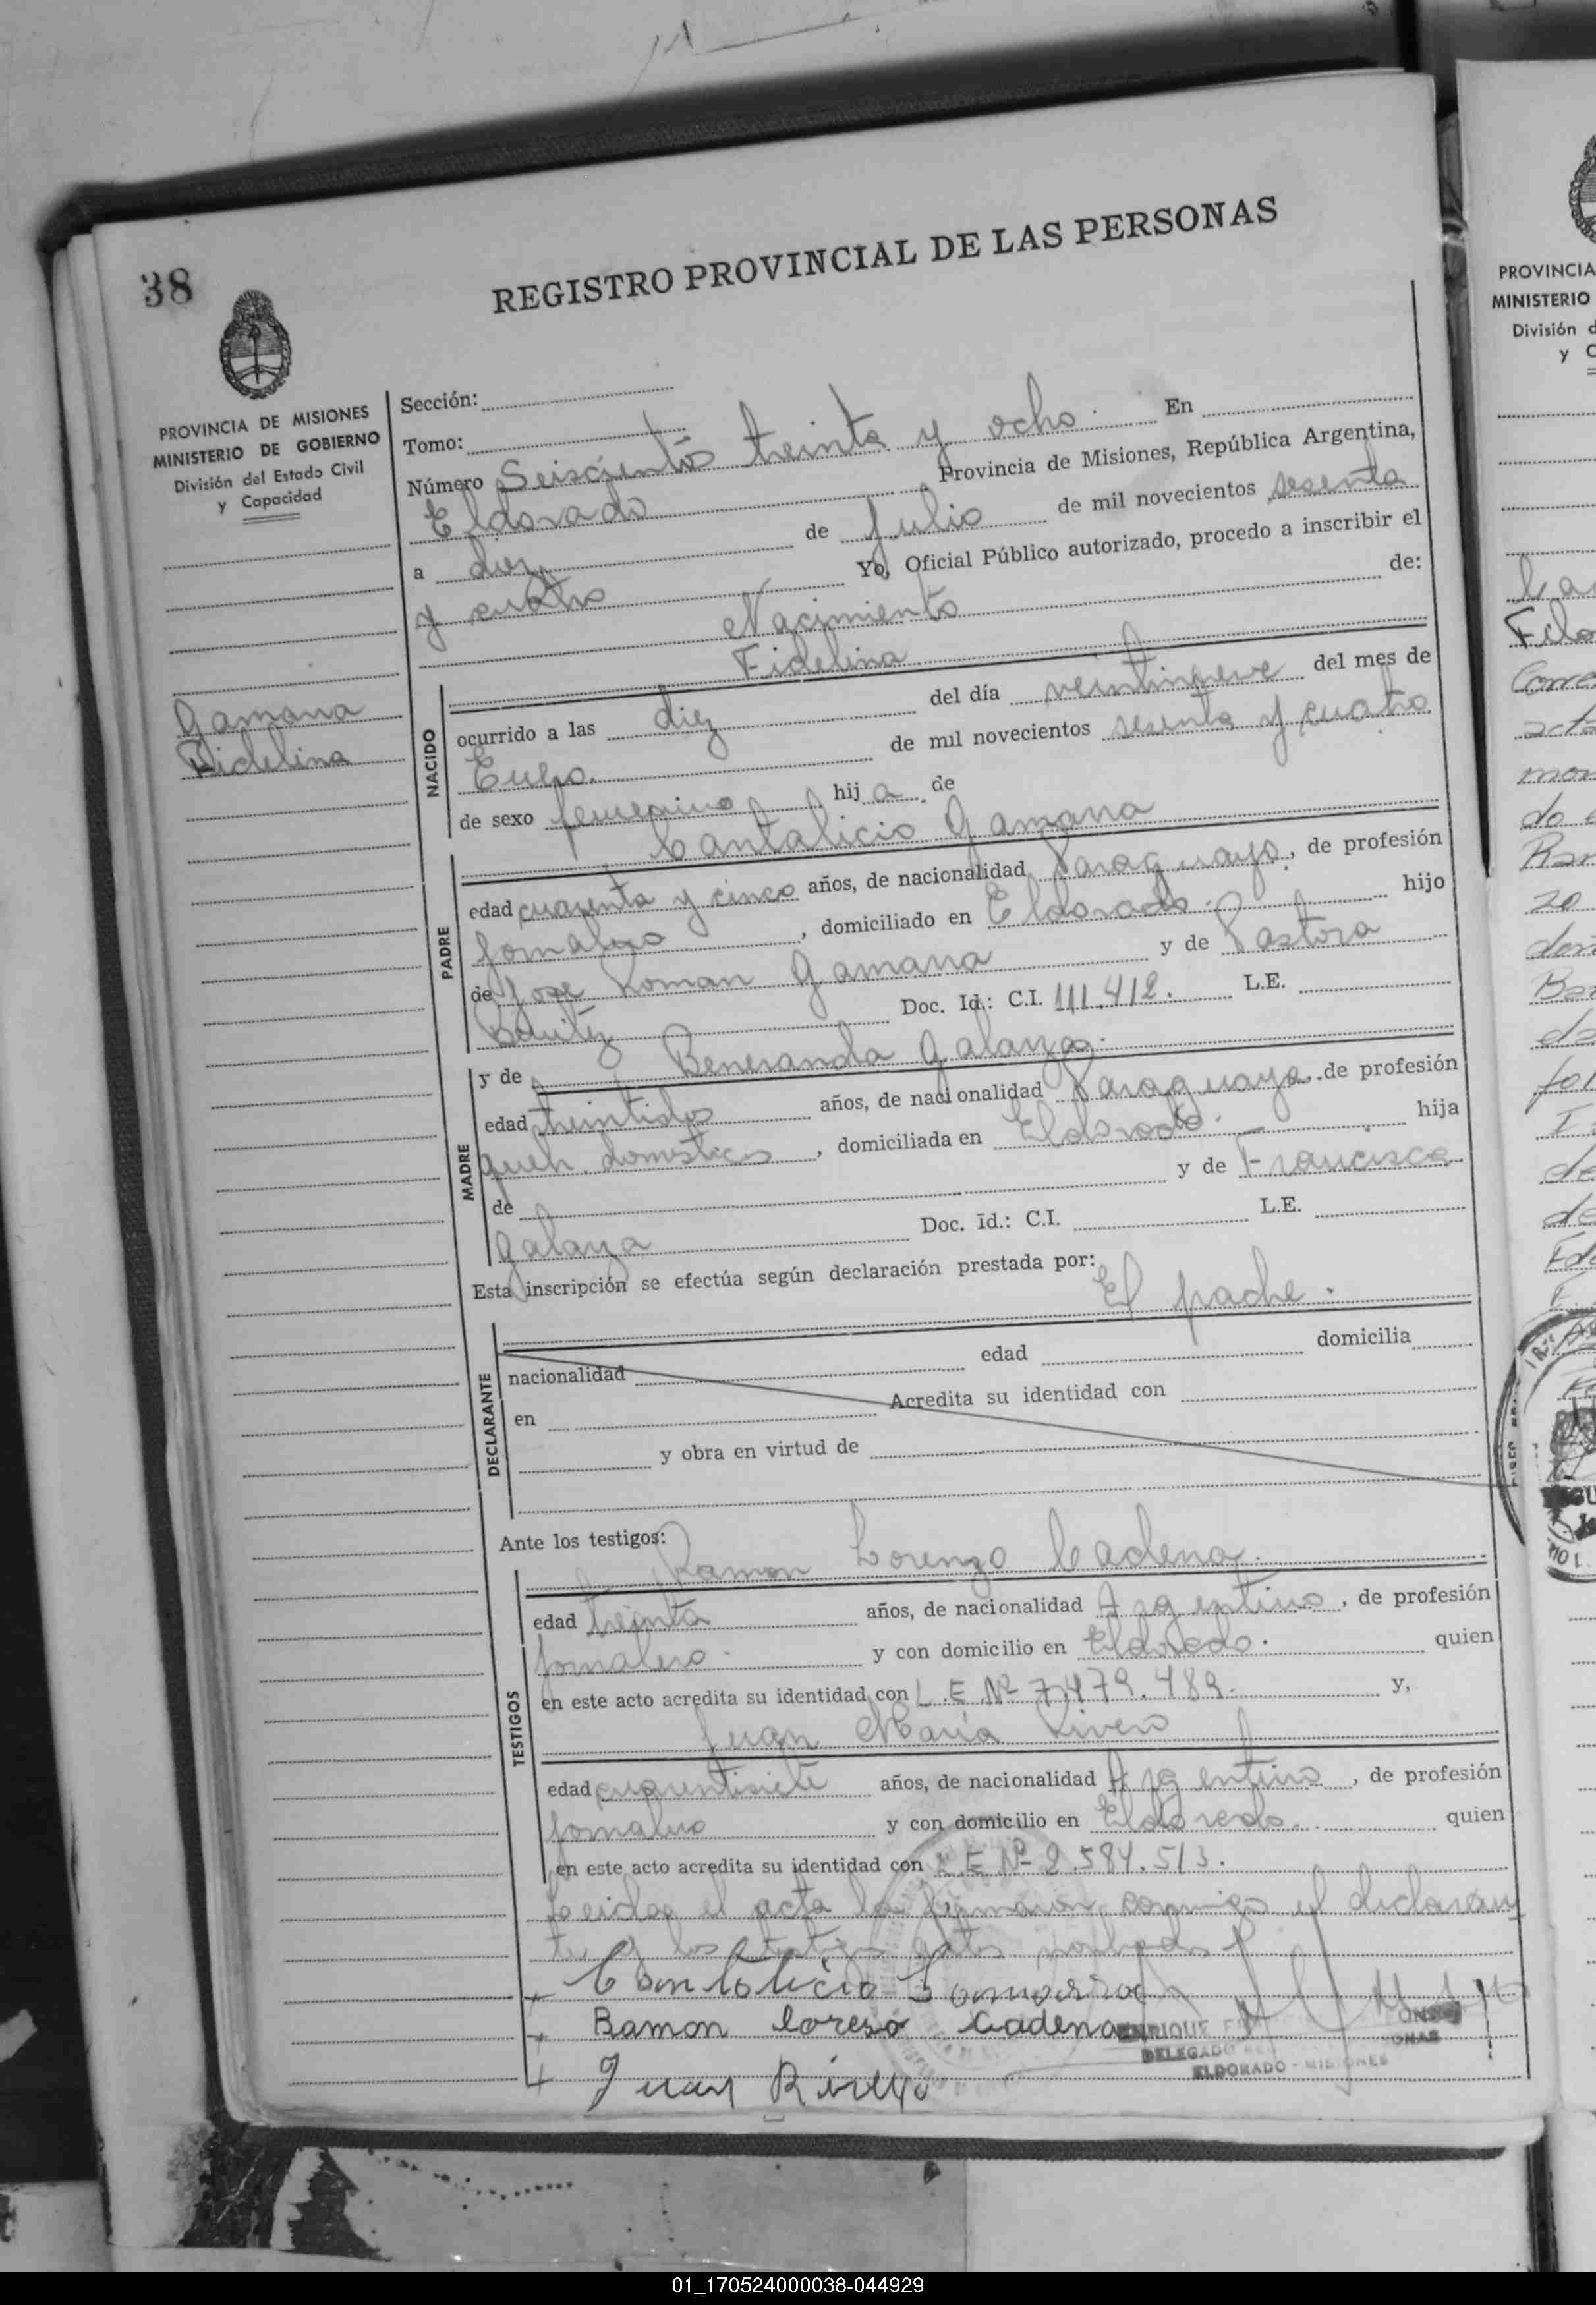 38
REGISTRO PROVINCIAL DE LAS PERSONAS
PROVINCIA DE MISIONES
MINISTERIO DE GOBIERNO
División del Estado Civil
y Capacidad
Gamana
Fidelina
Sección:
Tomo:
Número Seiscientos treinta y ocho. En
Eldorado Provincia de Misiones, República Argentina,
a diez de Julio de mil novecientos sesenta
y cuatro Yo, Oficial Público autorizado, procedo a inscribir el
Nacimiento de:
Fidelina
NACIDO
ocurrido a las diez del día veintinueve del mes de
Enero. de mil novecientos sesenta y cuatro
de sexo femenino hija de
Cantalicio Gamana
PADRE
edad cuarenta y cinco años, de nacionalidad Paraguayo, de profesión
Jornalero, domiciliado en Eldorado. hijo
de José Roman Gamana y de Pastora
Benitez Doc. Id.: C.I. 111.412. L.E.
y de Beneranda Galarza.
MADRE
edad treintidos años, de nacionalidad Paraguaya, de profesión
queh. domesticos, domiciliada en Eldorado. hija
de y de Francisca
Galarza Doc. Id.: C.I. L.E.
Esta inscripción se efectúa según declaración prestada por:
El padre.
DECLARANTE
nacionalidad edad domicilia
en Acredita su identidad con
y obra en virtud de
Ante los testigos:
Ramon Lorenzo Cadena.
TESTIGOS
edad treinta años, de nacionalidad Argentino, de profesión
Jornalero. y con domicilio en Eldorado. quien
en este acto acredita su identidad con L.E Nº 7.479.489. y,
Juan Maria Rivero
edad cuarentisiete años, de nacionalidad Argentino, de profesión
Jornalero y con domicilio en Eldorado. quien
en este acto acredita su identidad con L.E Nº 2.584.513.
Leida el acta la firmaron conmigo el declaran
te y los testigos
Cantalicio
Ramon Loreso Cadena
Juan Rivero
ENRIQUE
DELEGADO
ELDORADO - MISIONES
PROVINCIA
MINISTERIO
División d
y C
01_170524000038-044929